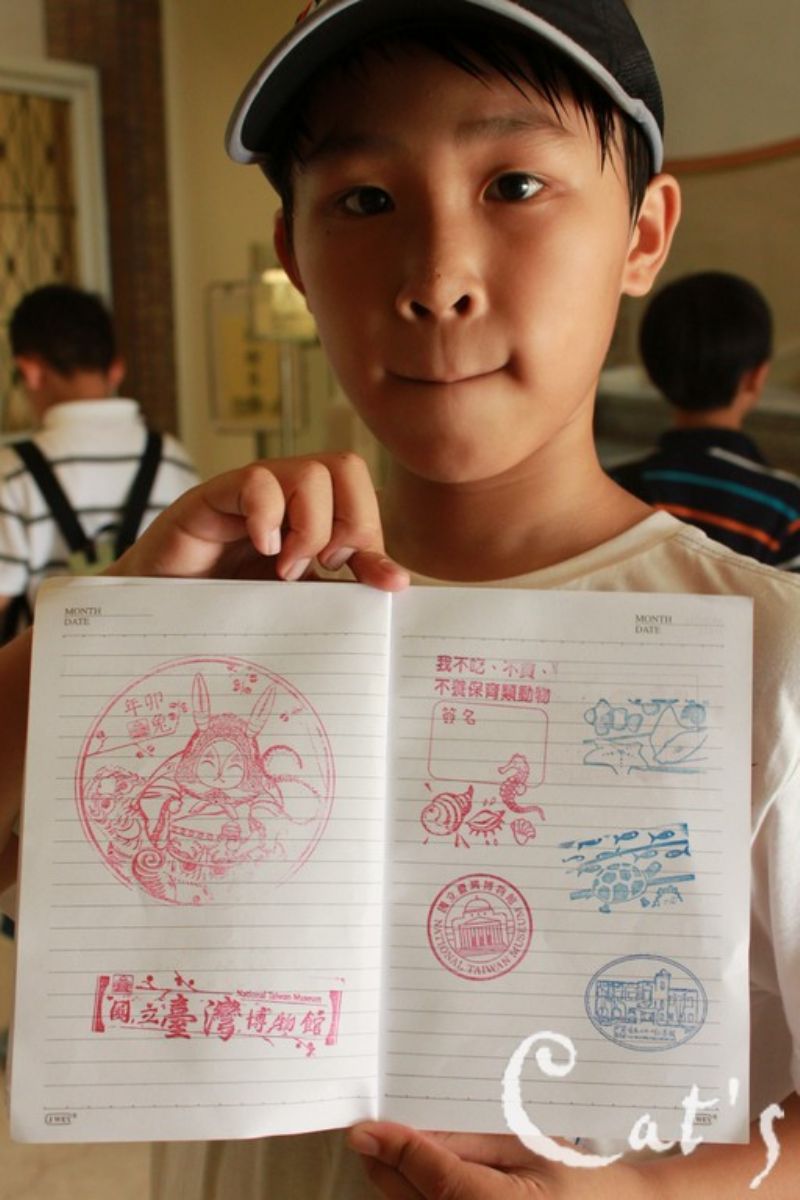 MONTH
DATE
年卯
兔
National Taiwan Museum
國立臺灣博物館
MONTH
DATE
我不吃、不買、
不養保育類動物
簽名
國立臺灣博物館
NATIONAL TAIWAN MUSEUM
Cat's